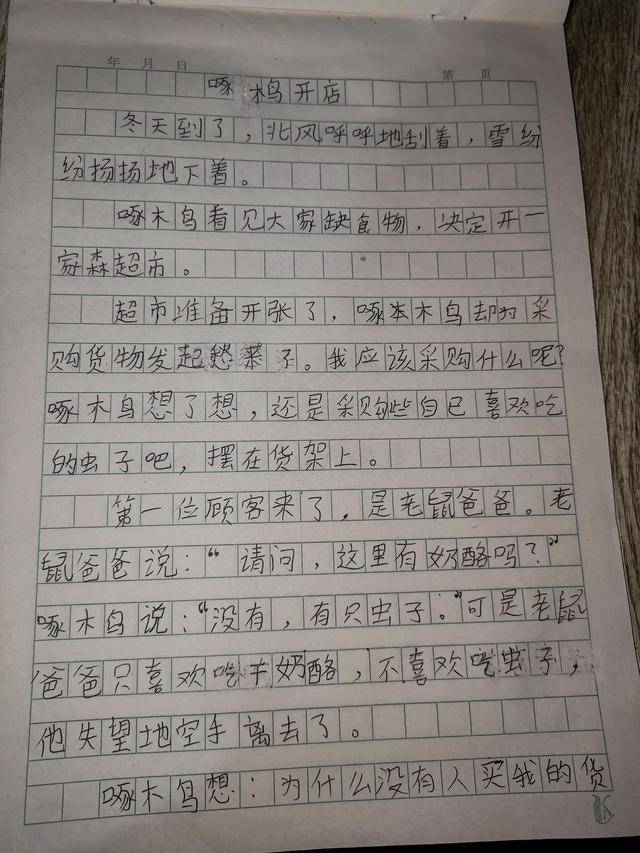 年 月 日 第 页
啄木鸟开店
冬天到了，北风呼呼地刮着，雪纷
纷扬扬地下着。
啄木鸟看见大家缺食物，决定开一
家森超市。
超市准备开张了，啄本木鸟却为采
购货物发起愁来了。我应该采购什么呢？
啄木鸟想了想，还是采购些自己喜欢吃
的虫子吧，摆在货架上。
第一位顾客来了，是老鼠爸爸。老
鼠爸爸说：“请问，这里有奶酪吗？”
啄木鸟说：“没有，有只虫子。”可是老鼠
爸爸只喜欢吃奶酪，不喜欢吃虫子，
他失望地空手离去了。
啄木鸟想：为什么没有人买我的货